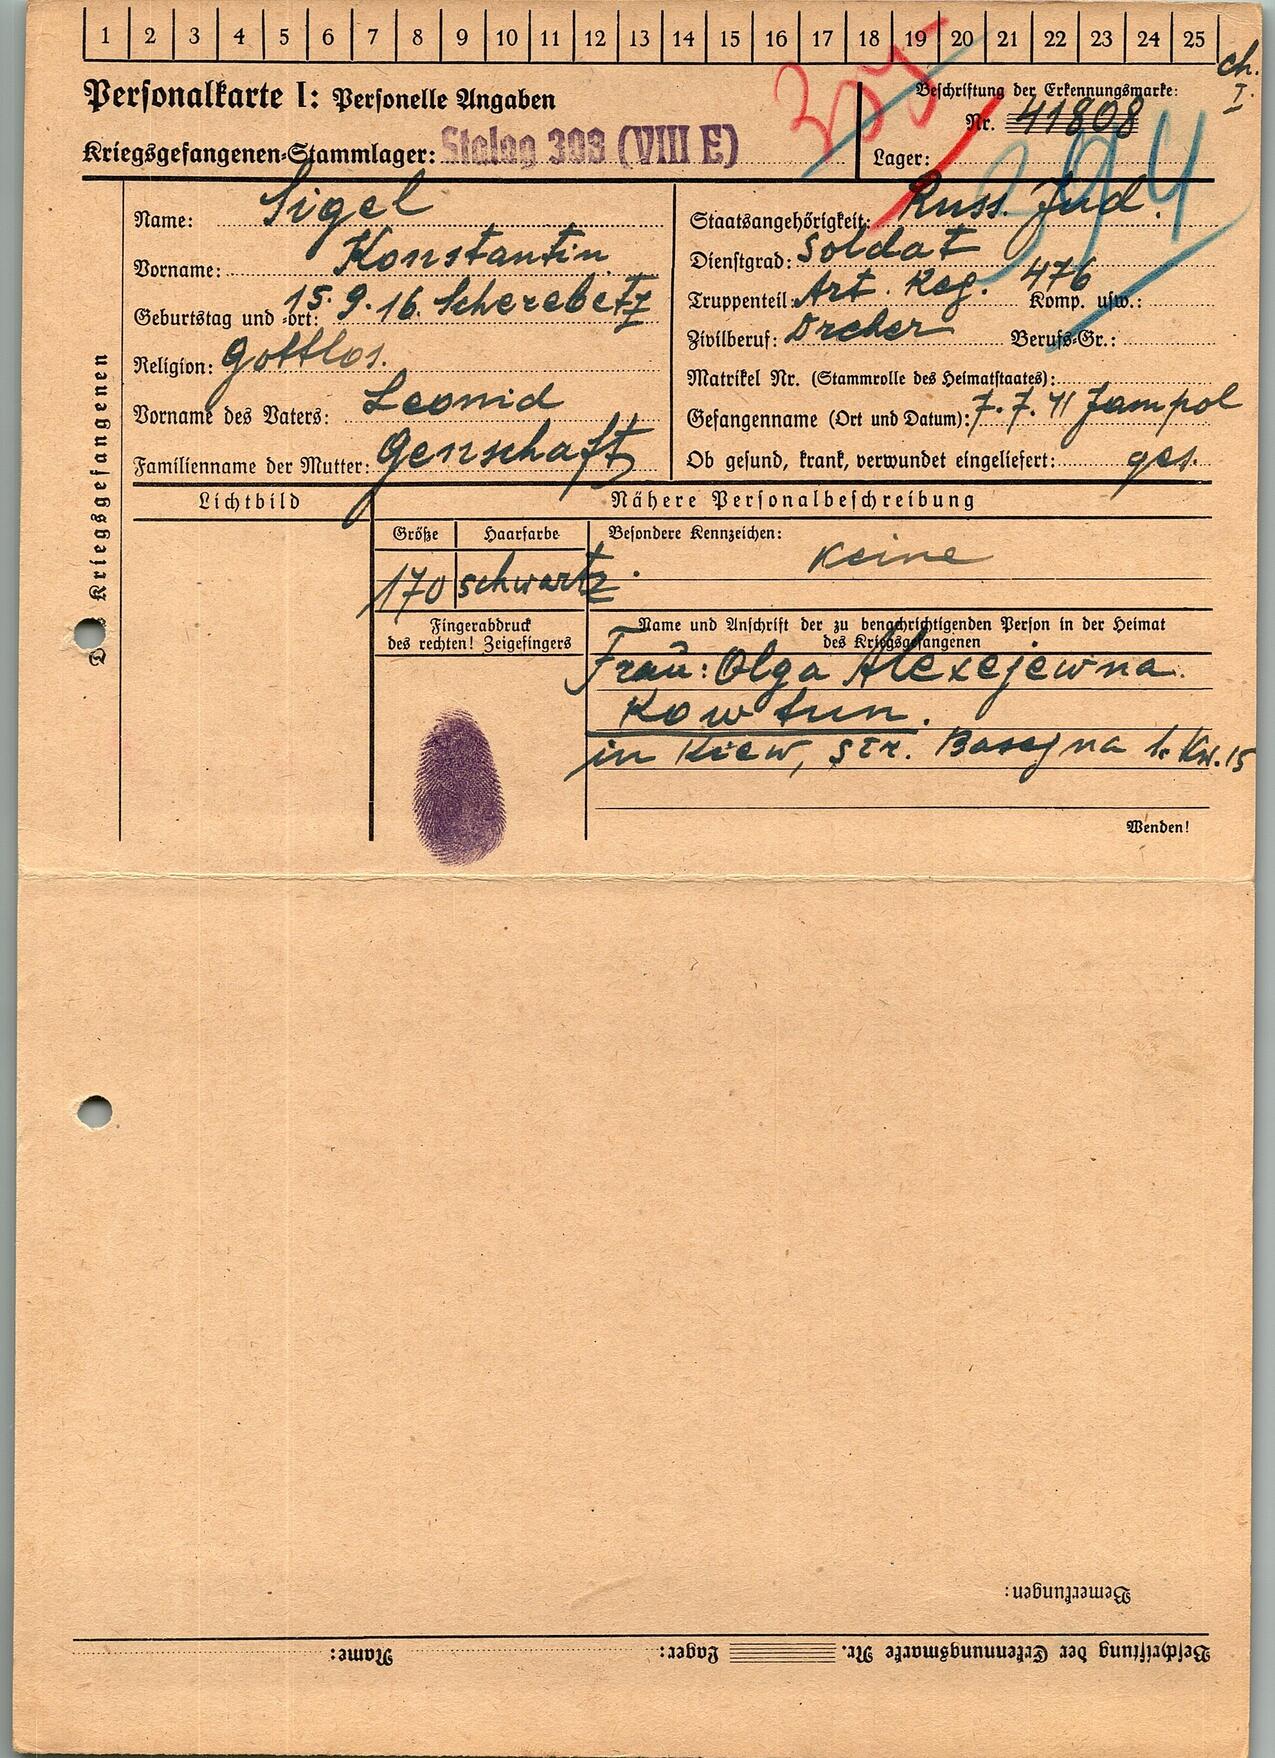 1 2 3 4 5 6 7 8 9 10 11 12 13 14 15 16 17 18 19 20 21 22 23 24 25
ch.
I.
Personalkarte I: Personelle Angaben
Beschriftung der Erkennungsmarke:
Nr. 41808
Kriegsgefangenen-Stammlager: Stalag 308 (VIII E)
Lager:
394
Des Kriegsgefangenen
Name: Sigel
Vorname: Konstantin
Geburtstag und -ort: 15.9.16. Scherebetz
Religion: Gottlos.
Vorname des Vaters: Leonid
Familienname der Mutter: Genschaft
Staatsangehörigkeit: Russ. Jud.
Dienstgrad: Soldat
Truppenteil: Art. Reg. 476 Komp. usw.:
Zivilberuf: Dreher Berufs-Gr.:
Matrikel Nr. (Stammrolle des Heimatstaates):
Gefangenname (Ort und Datum): 7.7.41 Jampol
Ob gesund, krank, verwundet eingeliefert: ges.
Lichtbild
Nähere Personalbeschreibung
Größe
Haarfarbe
Besondere Kennzeichen:
keine
170
schwartz.
Fingerabdruck
des rechten! Zeigefingers
Name und Anschrift der zu benachrichtigenden Person in der Heimat
des Kriegsgefangenen
Frau: Olga Alexejewna.
Kowtun.
in Kiew, Str. Basejna 1. Kw. 15
Wenden!
Bemerkungen:
Beschriftung der Erkennungsmarke Nr. Lager: Name: